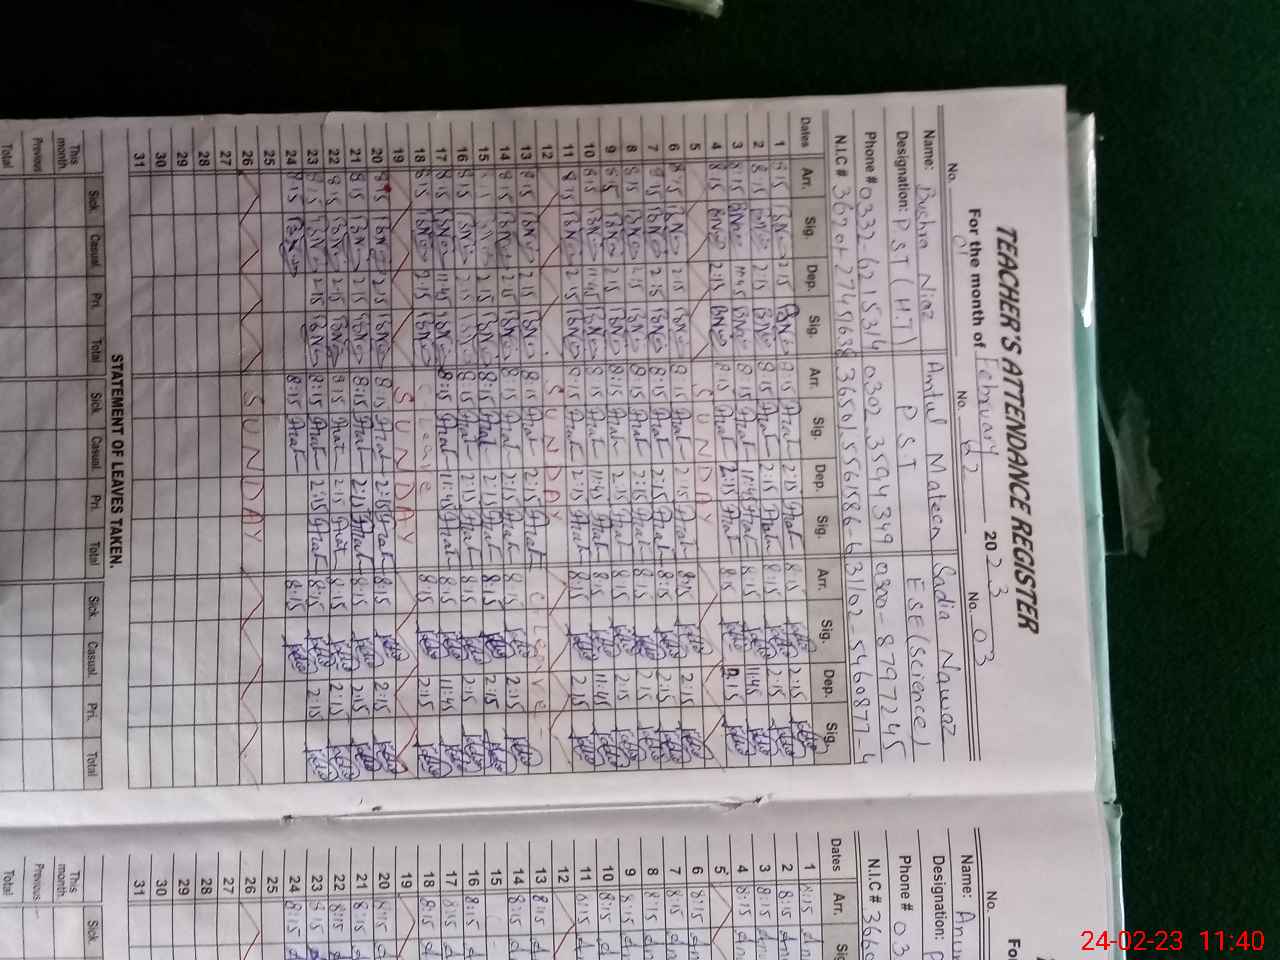 TEACHER'S ATTENDANCE REGISTER
For the month of February 2023
No. 01 No. 02 No. 03
Name: Bushra Niaz Amtul Mateen Sadia Nawaz
Designation: P S T (H.T) P S T E S E (Science)
Phone # 0332-6215314 0302 3594349 0300-8797245
N.I.C #
Dates Arr. Sig. Dep. Sig. Arr. Sig. Dep. Sig. Arr. Sig. Dep. Sig.
1 8:15 BN 2:15 BN 8:15 Amat 2:15 Amat 8:15 2:15
2 8:15 BN 2:15 BN 8:15 Amat 2:15 Amat 8:15 2:15
3 8:15 BN 11:45 BN 8:15 Amat 11:45 Amat 8:15 11:45
4 8:15 BN 2:15 BN 8:15 Amat 2:15 Amat 8:15 2:15
5 SUNDAY
6 8:15 BN 2:15 BN 8:15 Amat 2:15 Amat 8:15 2:15
7 8:15 BN 2:15 BN 8:15 Amat 2:15 Amat 8:15 2:15
8 8:15 BN 2:15 BN 8:15 Amat 2:15 Amat 8:15 2:15
9 8:15 BN 2:15 BN 8:15 Amat 2:15 Amat 8:15 2:15
10 8:15 BN 11:45 BN 8:15 Amat 11:45 Amat 8:15 11:45
11 8:15 BN 2:15 BN 8:15 Amat 2:15 Amat 8:15 2:15
12 SUNDAY
13 8:15 BN 2:15 BN 8:15 Amat 2:15 Amat C Leave
14 8:15 BN 2:15 BN 8:15 Amat 2:15 Amat 8:15 2:15
15 BN 2:15 BN 8:15 Amat 2:15 Amat 8:15 2:15
16 8:15 BN 2:15 BN 8:15 Amat 2:15 Amat 8:15 2:15
17 8:15 BN 11:45 BN 8:15 Amat 11:45 Amat 8:15 11:45
18 8:15 BN 2:15 BN C Leave 8:15 2:15
19 SUNDAY
20 8:15 BN 2:15 BN 8:15 Amat 2:15 Amat 8:15 2:15
21 8:15 BN 2:15 BN 8:15 Amat 2:15 Amat 8:15 2:15
22 8:15 BN 2:15 BN 8:15 Amat 2:15 Amat 8:15 2:15
23 8:15 BN 2:15 BN 8:15 Amat 2:15 Amat 8:15 2:15
24 8:15 BN 8:15 Amat 8:15
25
26 SUNDAY
27
28
29
30
31
STATEMENT OF LEAVES TAKEN.
Sick Casual Pri. Total Sick Casual Pri. Total Sick Casual Pri. Total
This month
Previous
Total
No.
For
Name:
Designation: P
Phone # 03
N.I.C #
Dates Arr.
1 8:15
2 8:15
3 8:15
4 8:15
5
6 8:15
7 8:15
8 8:15
9 8:15
10 8:15
11 8:15
12
13 8:15
14 8:15
15
16 8:15
17 8:15
18 8:15
19
20 8:15
21 8:15
22 8:15
23 8:15
24 8:15
25
26
27
28
29
30
31
Sick
This month
Previous
Total
24-02-23 11:40